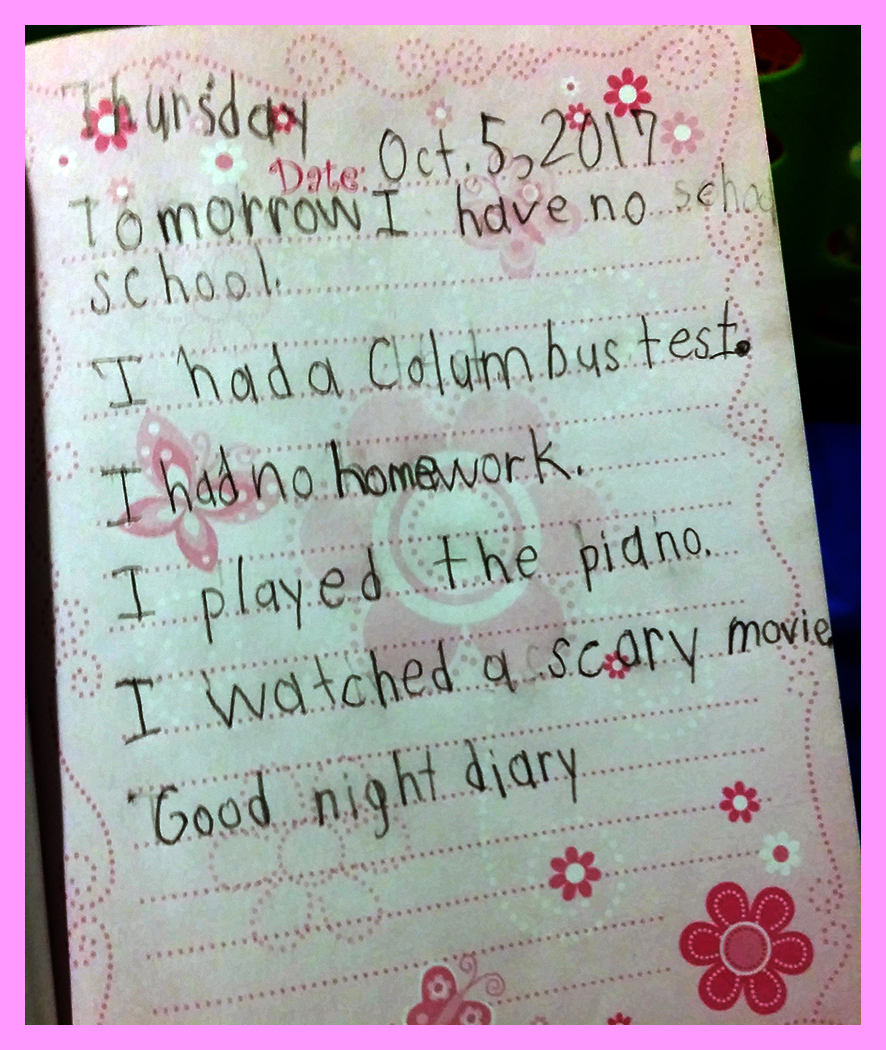 Thursday
Date: Oct. 5, 2017
Tomorrow I have no schoo
school.
I had a Columbus test.
I had no homework.
I played the piano.
I watched a scary movie
Good night diary